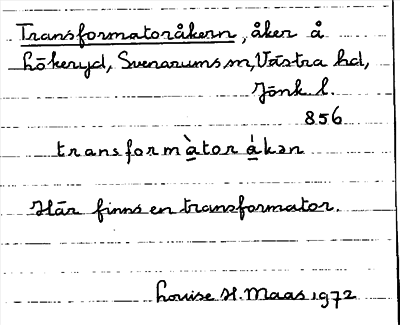 Transformatoråkern, åker å
Hökeryd, Svenarums sn, Västra hd,
Jönk. l.
856
transformàtorákən
Här finns en transformator.
Louise H. Maas 1972